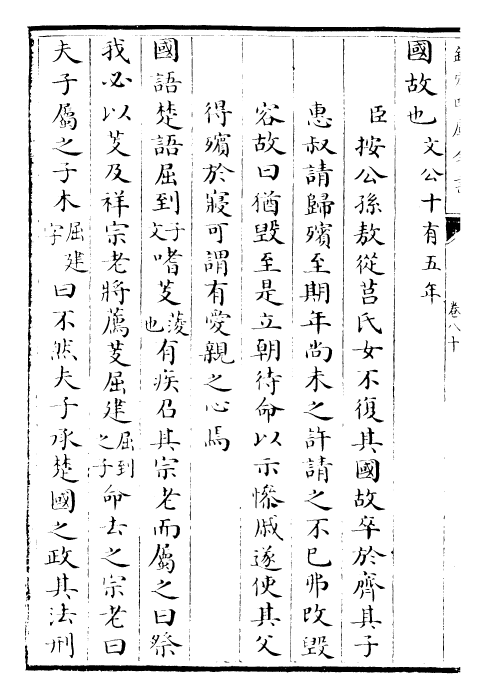 欽定四庫全書
卷八十
國故也文公十有五年
臣按公孫敖從莒氏女不復其國故卒於齊其子
惠叔請歸殯至期年尚未之許請之不已弗改毁
容故曰猶毁至是立朝待命以示慘戚遂使其父
得殯於寢可謂有愛親之心焉
國語楚語屈到子文嗜芰蔆也有疾召其宗老而屬之曰祭
我必以芰及祥宗老將薦芰屈建屈到之子命去之宗老曰
夫子屬之子木屈建字曰不然夫子承楚國之政其法刑